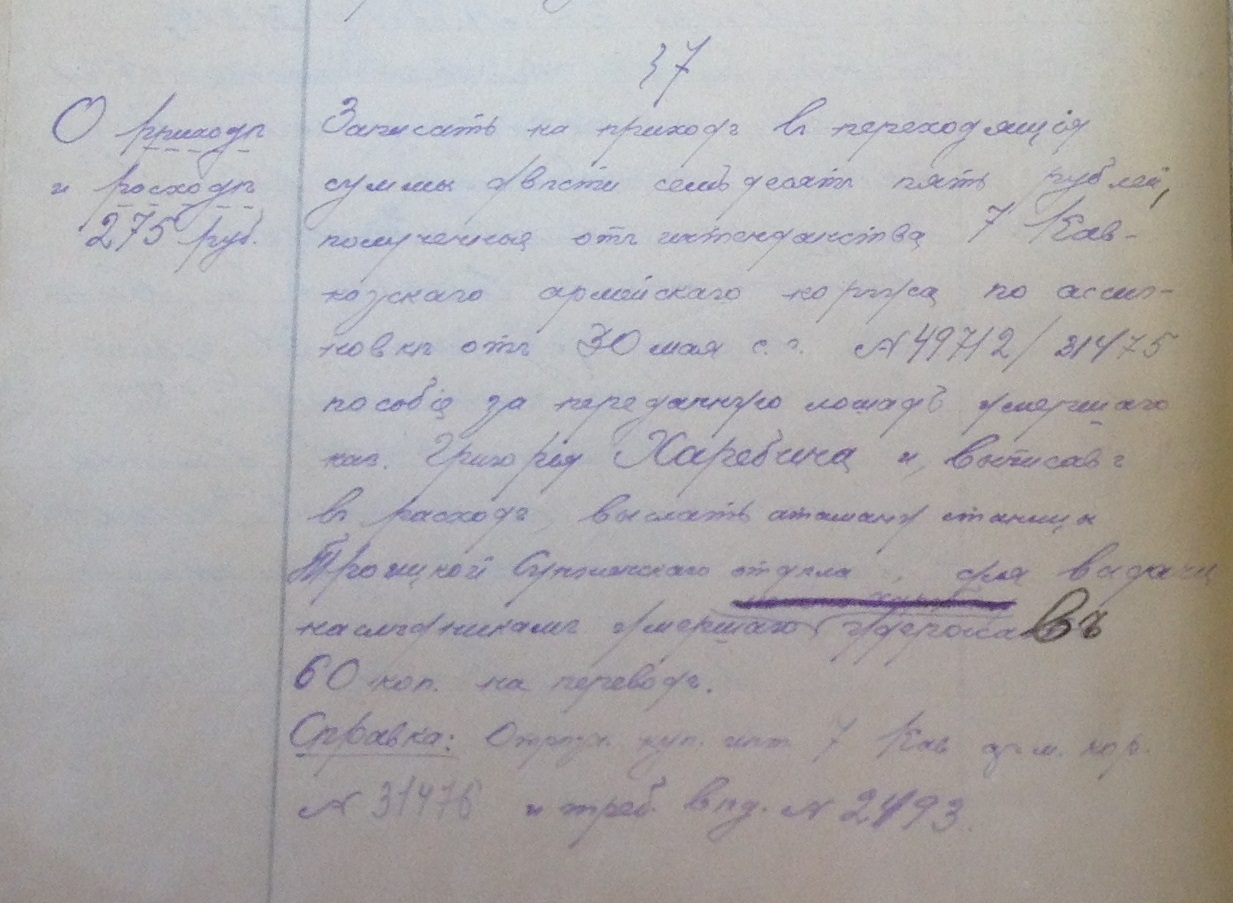 § 7
О приходѣ
и расходѣ
275 руб.
Записать на приходъ въ переходящія
суммы двѣсти семьдесятъ пять рублей,
полученныя отъ интендантства 7 Кав-
казскаго армейскаго корпуса по ассиг-
новкѣ отъ 30 мая с. г. № 49712/31475
пособіе за переданную лошадь умершаго
каз. Григорія Харебина и, выписавъ
въ расходъ, выслать атаману станицы
Троицкой Сунженскаго отдѣла, для выдачи
наслѣдникамъ умершаго, удержавъ
60 коп. на переводъ.
Справка: инт. 7 Кав. арм. кор.
№ 31476 и треб. вѣд. № 2493.